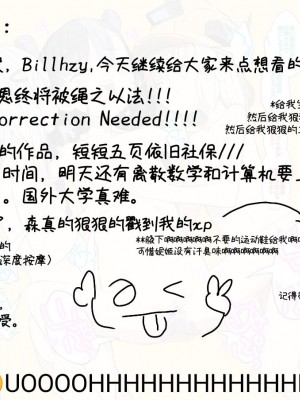 ：
，Billhzy,今天继续给大家来点想看的
恶终将被绳之以法!!!
*给我
然后给我狠
然后给我狠狠的
orrection Needed!!!!
的作品，短短五页依旧社保///
时间，明天还有离散数学和计算机要上
。国外大学真难。
，森真的狠狠的戳到我的xp
的
深度按摩）
**脱下啊啊啊啊啊啊不要的运动鞋给我
可惜妮姬没有汗臭味啊啊啊啊啊啊啊
记得
受。
UOOOOHHHHHHHHHHHHHH